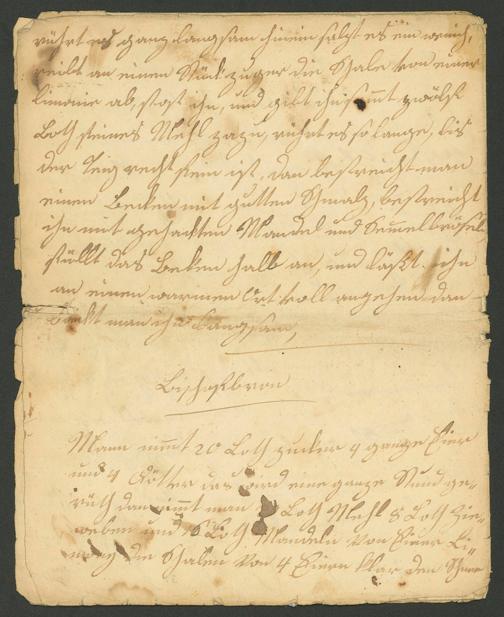 rührt es ganz langsam hinein salzt es ein wenich,
reibt an einen Stück zuger die Schale von einer
limonie ab, stost ihn, und gibt ihn samt zwölf
Loth feines Mehl zazu, rührt es so lange, bis
der teig recht fein ist, dan bestreicht man
einen Becken mit gutten Schmalz, bestreicht
ihn mit gehackten Mandel und Semelbrösel
füllt das Beken halb an, und läßt ihn
an einen warmen Ort voll angehen dan
backt man ihn langsam,
Bischofbrod
Mann nimt 20 Loth zucker 4 ganze Eier
und 4 Dötter das wird eine ganze Stund ge-
rürth dan nimt man Loth Mehl 8 Loth Zie-
weben und Loth Mandeln von Einer Li-
mony die Schalen von 4 Eiern klar den Schne